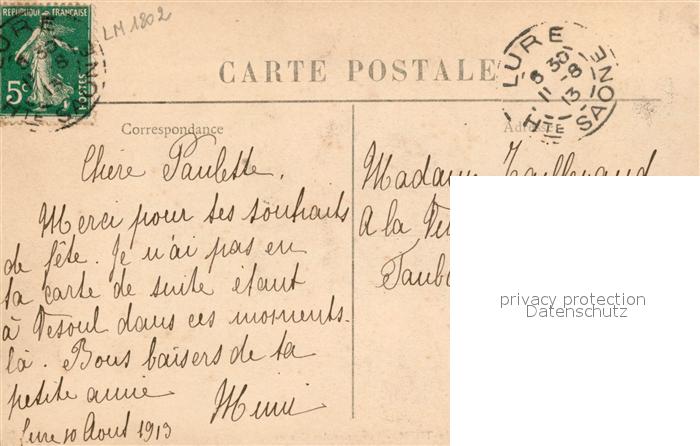 REPUBLIQUE FRANÇAISE
5c
LURE
8 30
SAONE
LM 1802
CARTE POSTALE
LURE
8 30
11 - 8
13
HTE SAONE
Correspondance
Chère Paulette,
Merci pour tes souhaits
de fête. Je n'ai pas eu
ta carte de suite étant
à Vesoul dans ces moments-
là. Bons baisers de ta
petite amie
Mimi
Lure 10 Août 1913
Madame
A la
privacy protection
Datenschutz